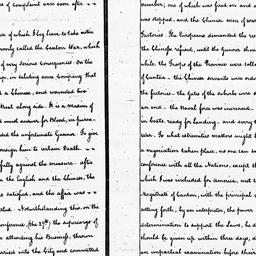 of complaint were soon after --
of which I beg leave to take notice
commonly called the Canton War, which
of very serious consequences. On the
up, in saluting some Company that
a Chinese, and wounded two
that along side. It is a maxim of
blood must answer for blood, in pursu-
the unfortunate Gunner. To give
consign him to certain Death. --
fully against the measure. After
the English and the Chinese, the
satisfied, and the affair was --
Notwithstanding this, on the
conference, (the 27th) the supercargo of
attending his Business, thrown
carried into the City and committed
number; one of which was fired on and
was stopped, and the Chinese men of war
Factories. The Europeans demanded the
the Chinese refused, until the gunner should
while, the Troops of the Province were coll
of Canton -- the Chinese servants were order
the factories -- the gates of the suburbs were
an end -- the naval force was increased
in boats, ready for landing -- and every
war. To what extremities matters might
a negotiation taken place, no one can
conference with all the Nations, except the
which I was included for America, and
Magistrate of Canton, with the principal
setting forth, by an interpreter, the power
determination to support the laws, he
should be given up within three days,
an impartial examination before their